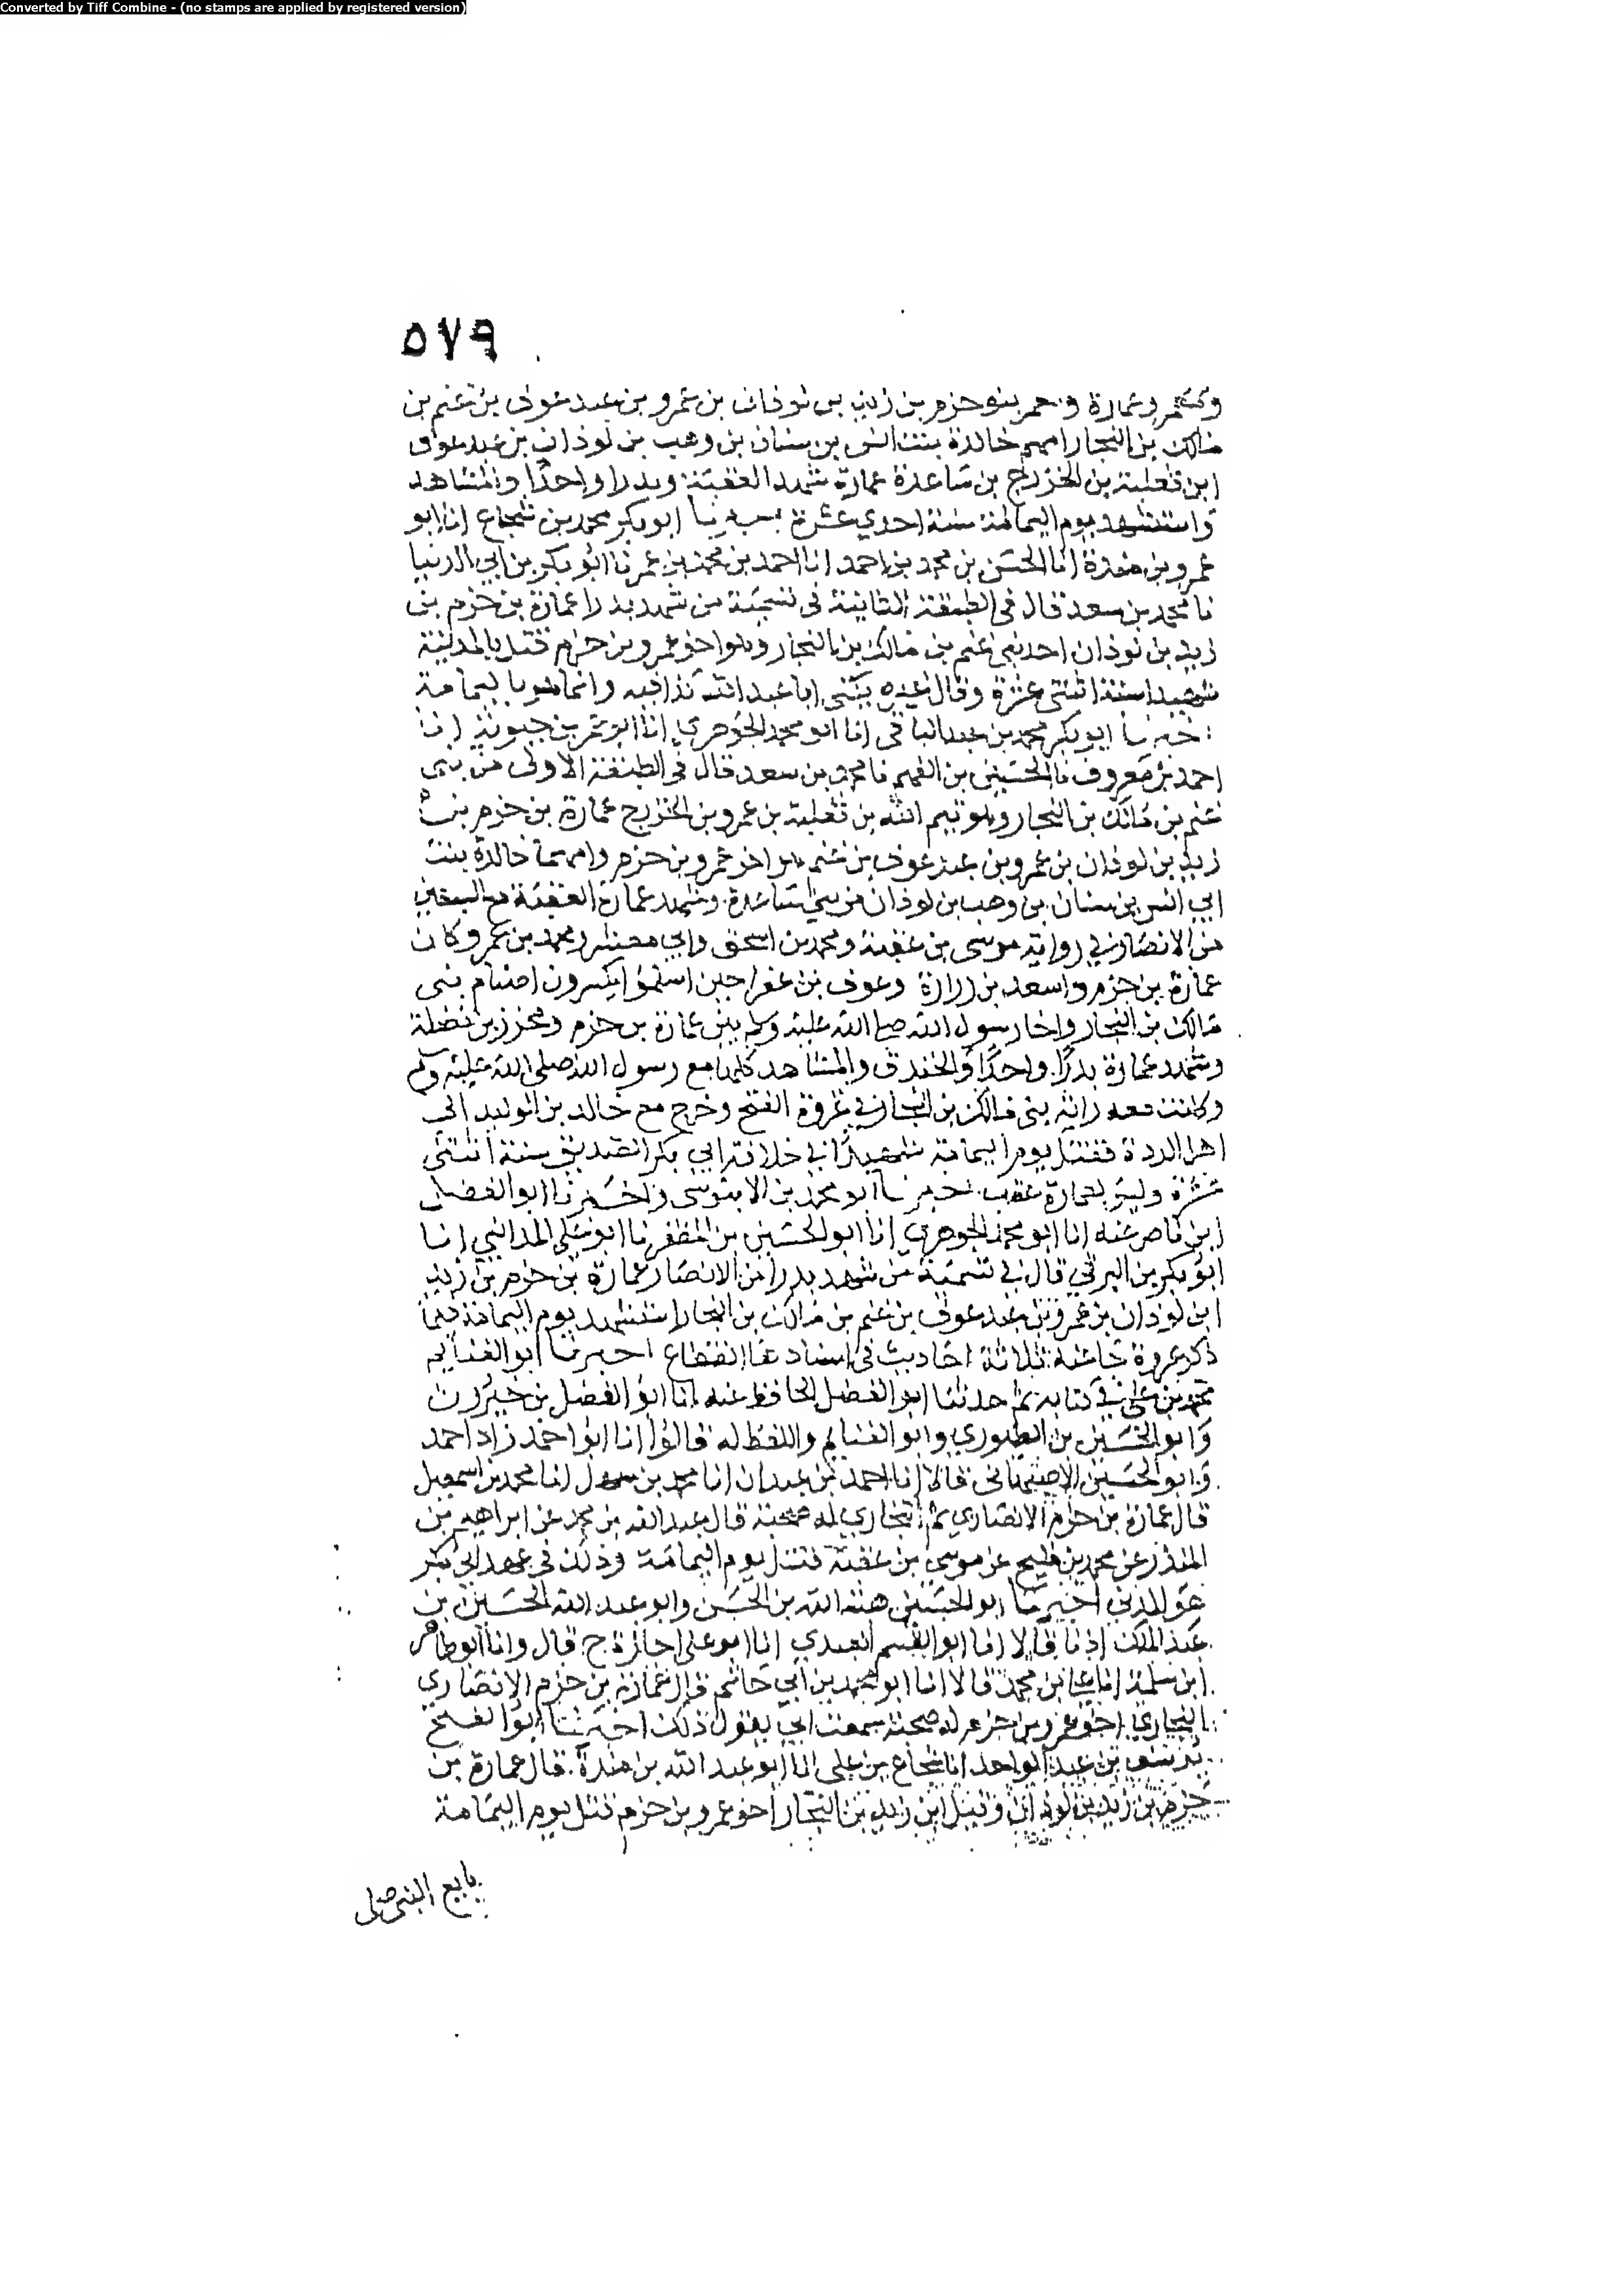 Converted by Tiff Combine - (no stamps are applied by registered version)
٥٧٩
وعمارة و بنو حزم بن زيد بن لوذان بن عمرو بن عبد عوف بن غنم بن
مالك بن النجار امهم خالدة بنت انس بن سنان بن وهب بن لوذان بن عبد عوف
ابن ثعلبة بن الخزرج بن ساعدة عمارة شهد العقبة وبدرا واحدا والمشاهد
واستشهد يوم اليمامة سنة احدي عشرة ابو بكر محمد بن شجاع انا ابو
عمرو بن مندة انا الحسن بن محمد بن احمد انا احمد بن محمد بن عمر نا ابو بكر بن ابي الدنيا
نا محمد بن سعد قال في الطبقة الثانية في تسمية من شهد بدرا عمارة بن حزم بن
زيد بن لوذان احد بني غنم بن مالك بن النجار وهو اخو عمرو بن حزم قتل بالمدينة
شهيدا سنة اثنتي عشرة وقال غيره يكنى ابا عبد الله كذا فيه وانما هو باليمامة
اخبرنا ابو بكر محمد بن عبد الباقي انا ابو محمد الجوهري انا ابو عمر بن حيوية انا
احمد بن معروف نا الحسين بن الفهم نا محمد بن سعد قال في الطبقة الاولى من بني
غنم بن مالك بن النجار وهو تيم الله بن ثعلبة بن عمرو بن الخزرج عمارة بن حزم بن
زيد بن لوذان بن عمرو بن عبد عوف بن غنم اخو عمرو بن حزم وامهما خالدة بنت
ابي انس بن سنان بن وهب بن لوذان من بني ساعدة وشهد عمارة العقبة مع السبعين
من الانصار في رواية موسى بن عقبة ومحمد بن اسحق وابي معشر ومحمد بن عمر وكان
عمارة بن حزم واسعد بن زرارة وعوف بن عفرا حين اسلموا يكسرون اصنام بني
مالك بن النجار واخا رسول الله صلى الله عليه وسلم بين عمارة بن حزم ومحرز بن نضلة
وشهد عمارة بدرا واحدا والخندق والمشاهد كلها مع رسول الله صلى الله عليه وسلم
وكانت معه راية بني مالك بن النجار في غزوة الفتح وخرج مع خالد بن الوليد الى
اهل الردة فقتل يوم اليمامة شهيدا في خلافة ابي بكر الصديق سنة اثنتي
عشرة وليس لعمارة عقب اخبرنا ابو محمد بن الابنوسي واخبرنا ابو الفضل
ابن ناصر عنه انا ابو محمد الجوهري انا ابو الحسين بن المظفر نا ابو علي المدائني انا
ابو بكر بن البرقي قال في تسمية من شهد بدرا من الانصار عمارة بن حزم بن زيد
ابن لوذان بن عمرو بن عبد عوف بن غنم بن مالك بن النجار استشهد يوم اليمامة فيما
ذكر عروة ثلاثة احاديث في اسنادها انقطاع اخبرنا ابو الغنايم
محمد بن علي في كتابه ثم حدثنا ابو الفضل الحافظ عنه انا ابو الفضل بن خيرون
وابو الحسين بن الطيوري وابو الغنايم واللفظ له قالوا انا ابو احمد زاد احمد
وابو الحسين الاصبهاني قالا انا احمد بن عبدان انا محمد بن سهل انا محمد بن اسمعيل
قال عمارة بن حزم الانصاري ثم النجاري له صحبة قال عبد الله بن محمد عن ابراهيم بن
المنذر عن محمد بن فليح عن موسى بن عقبة قتل يوم اليمامة وذلك في عهد ابي بكر
هو المدني اخبرنا ابو الحسين هبة الله بن الحسن وابو عبد الله الحسين بن
عبد الملك اذنا قالا انا ابو القسم العبدي انا ابو علي اجازة ح قال وانا ابو طاهر
ابن سلمة انا علي بن محمد قالا انا ابو محمد بن ابي حاتم قال عمارة بن حزم الانصاري
النجاري اخو عمرو بن حزم له صحبة سمعت ابي يقول ذلك اخبرنا ابو الفتح
يوسف بن عبد الواحد انا شجاع بن علي انا ابو عبد الله بن مندة قال عمارة بن
حزم بن زيد بن لوذان وقيل ابن زيد بن النجار اخو عمرو بن حزم قتل يوم اليمامة
بايع النبي صلى